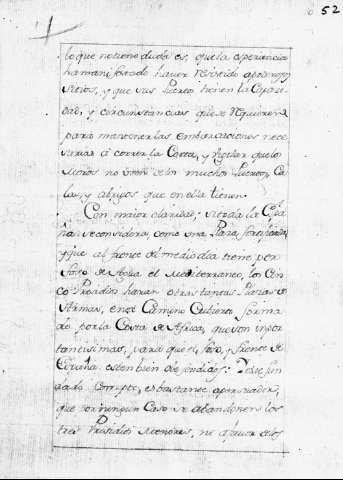 52
lo que no tiene duda es, que la experiencia
ha manifestado haver resistido a
sitios, y que sus Puertos tienen la Capaci-
dad, y circunstancias que se requieren
para mantener las embarcaciones nece-
sarias á correr la Costa, y
no en los muchos Puertos, Ca-
las, y abrigos que en ella tienen.
Con maior claridad: si toda la Espa-
ña se considera, como una Plaza fortificada,
y que al frente del medio dia tiene por
foso de Agua el Mediterraneo, los Cin-
co Presidios haran otras tantas Plazas de
Armas, en el Camino Cubierto forma-
do por la Costa de Africa, que son impor-
tantisimas, para que el foso, y frente de
España esten bien defendidos: Este fun-
dado es bastante a persuadir,
que por ningun Caso se abandonen los
tres Presidios menores, ni